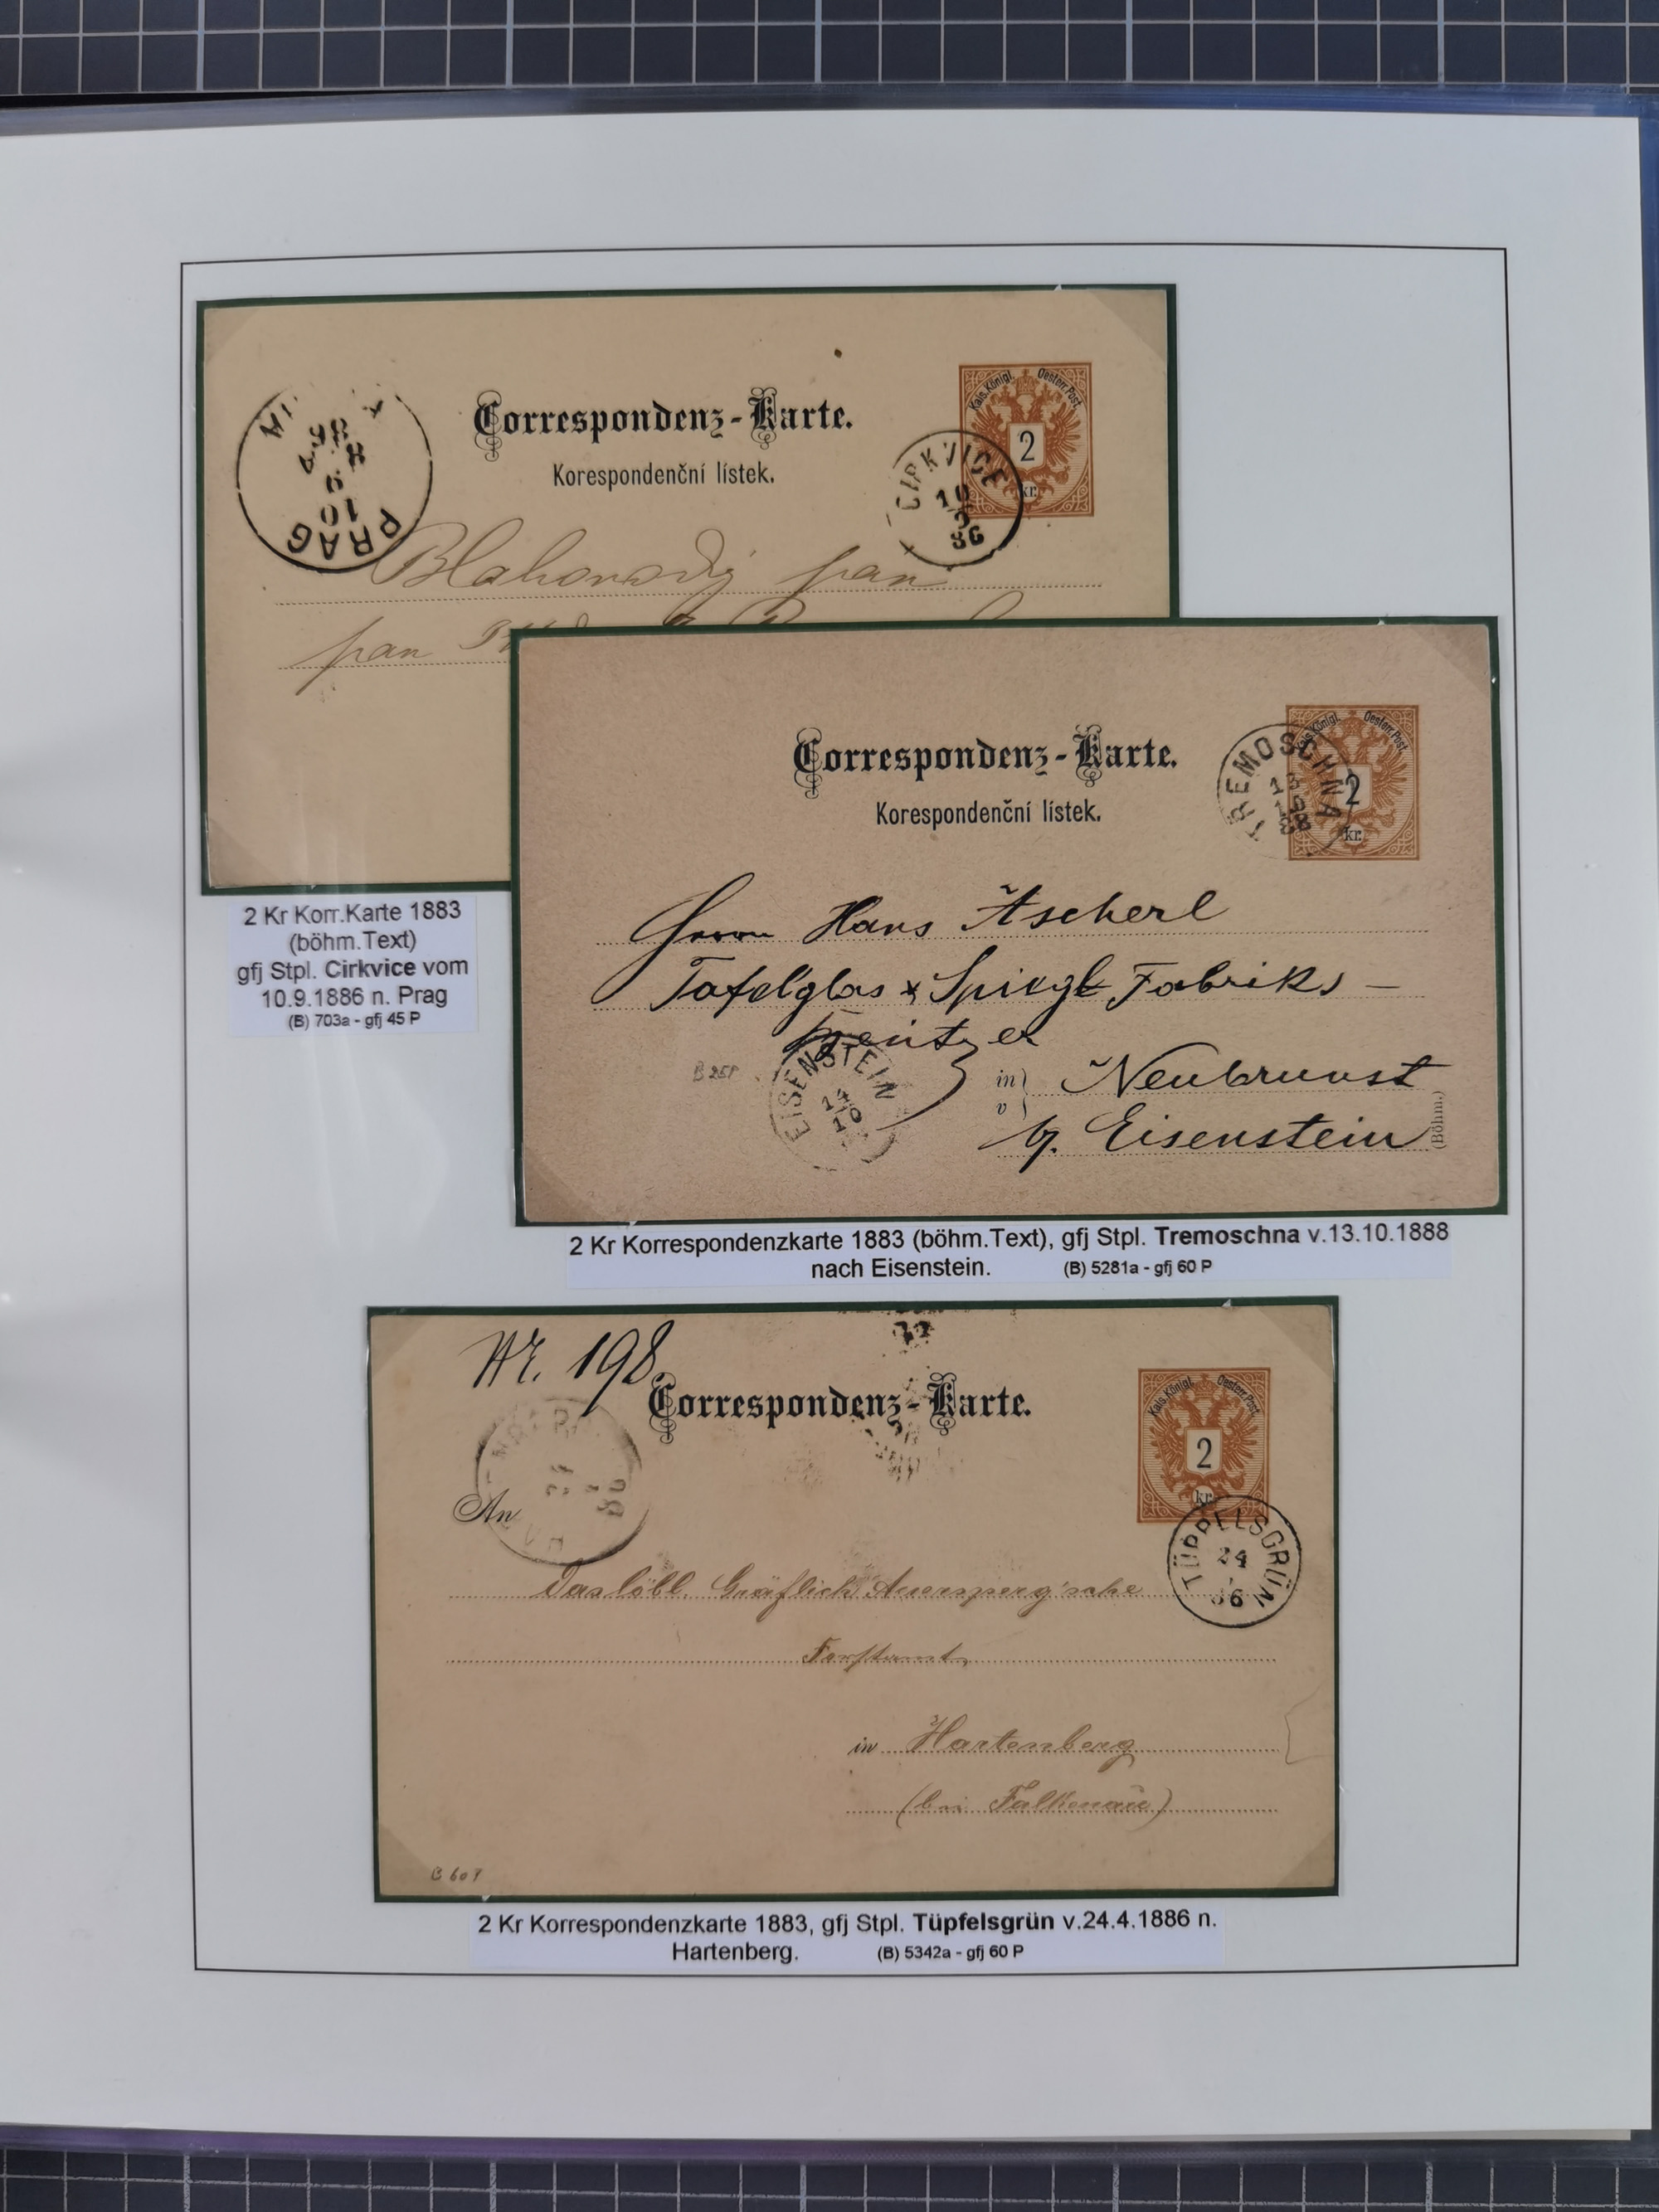 Correspondenz-Karte.
Korespondenční lístek.
Kais. Königl. Oesterr. Post.
2
kr.
CIRKVICE
10
9
86
PRAG
10
9
Blahorodý pan
pan
2 Kr Korr.Karte 1883
(böhm.Text)
gfj Stpl. Cirkvice vom
10.9.1886 n. Prag
(B) 703a - gfj 45 P
Correspondenz-Karte.
Korespondenční lístek.
Kais. Königl. Oesterr. Post.
2
kr.
TREMOSCHNA
13
10
88
Herrn Hans Ascherl
Tafelglas & Spiegl Fabriks-
besitzer
EISENSTEIN
14
10
B 25P
in
v
Neubrunst
b/. Eisenstein
(Böhm.)
2 Kr Korrespondenzkarte 1883 (böhm.Text), gfj Stpl. Tremoschna v.13.10.1888
nach Eisenstein. (B) 5281a - gfj 60 P
Nr. 198
Correspondenz-Karte.
Kais. Königl. Oesterr. Post.
2
kr.
TÜPPELSGRÜN
24
86
An
Das löbl. Gräflich Auersperg'sche
Forstamt
in Hartenberg
(bei Falkenau)
B 60P
2 Kr Korrespondenzkarte 1883, gfj Stpl. Tüpfelsgrün v.24.4.1886 n.
Hartenberg. (B) 5342a - gfj 60 P